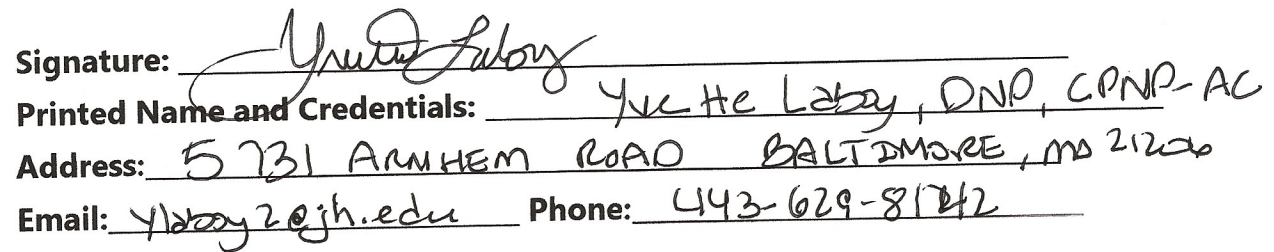 Signature: Yvette Laboy
Printed Name and Credentials: Yvette Laboy, DNP, CPNP-AC
Address: 5731 ARNHEM ROAD BALTIMORE, MD 21206
Email: ylaboy2@jh.edu Phone: